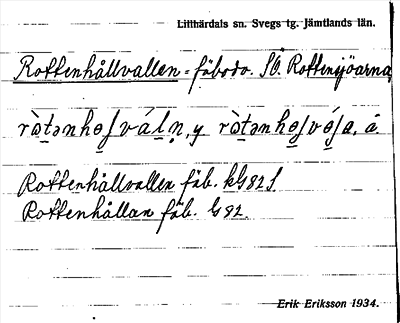 Lillhärdals sn. Svegs tg. Jämtlands län.
Rottenhållvallen = fäbodo. SÖ. Rottensjöarna
rò̀t̠ənho̠ʃvál̠n̥, y rò̀t̠ənho̠ʃvo̠ʃa, å
Rottenhållvallen fäb. kG82 f
Rottenhållan fäb. G 92.
Erik Eriksson 1934.